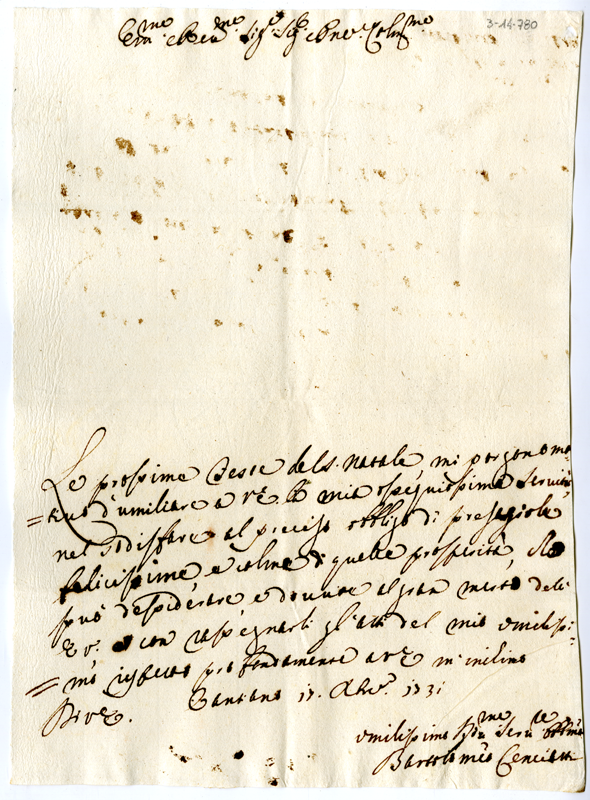 3-14-780
Em.mo e Rev.mo Sig.r Sig.r e Pne. Colm.mo
Le prossime Feste del S. Natale, mi porgono mo-
=tivo d'umiliare a V.E. la mia ossequiosissima servitù
nel sodisfare al preciso obbligo di pregargliele
felicissime, e colme di quelle prosperità, che
può desiderare e dovute al gran merito dell'
E.V. e con rasegnarli gl'atti del mio umilissi-
=mo rispetto profondamente a V.E. m'inchino
Di V.E.
Cantiano 17. Xbre. 1731
Umilissimo Dev.mo Serv.re obblig.mo
Bartolomeo Cenciatti